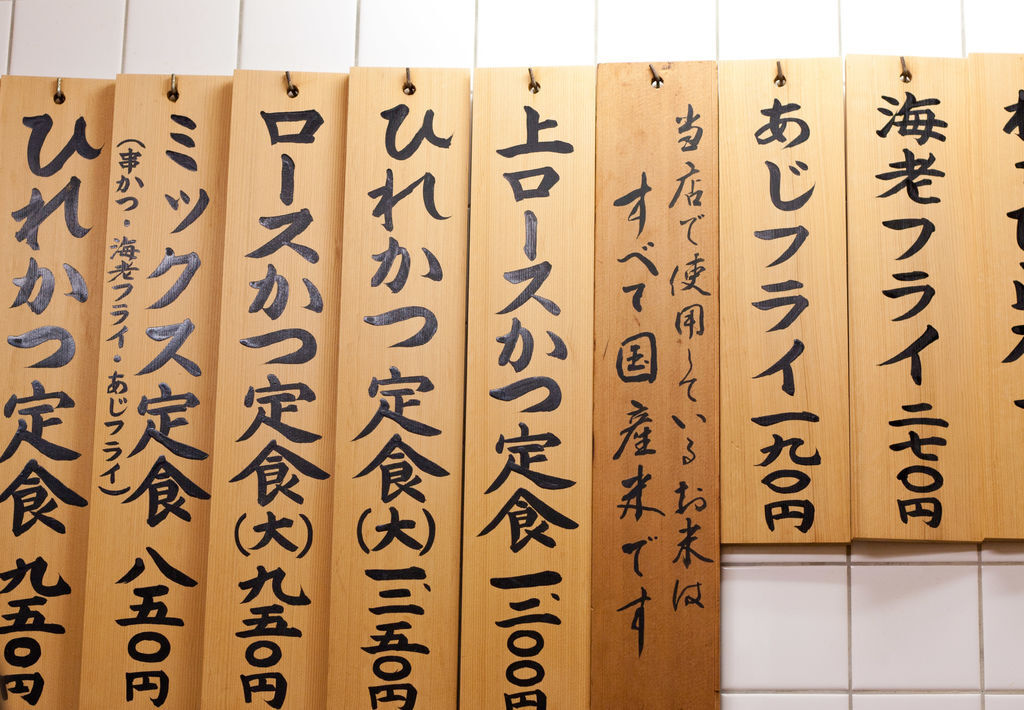 海老フライ 二七〇円
あじフライ 一九〇円
当店で使用しているお米は
すべて国産米です
上ロースかつ定食 一、二〇〇円
ひれかつ定食(大) 一、二五〇円
ロースかつ定食(大) 九五〇円
ミックス定食 八五〇円
(串かつ・海老フライ・あじフライ)
ひれかつ定食 九五〇円